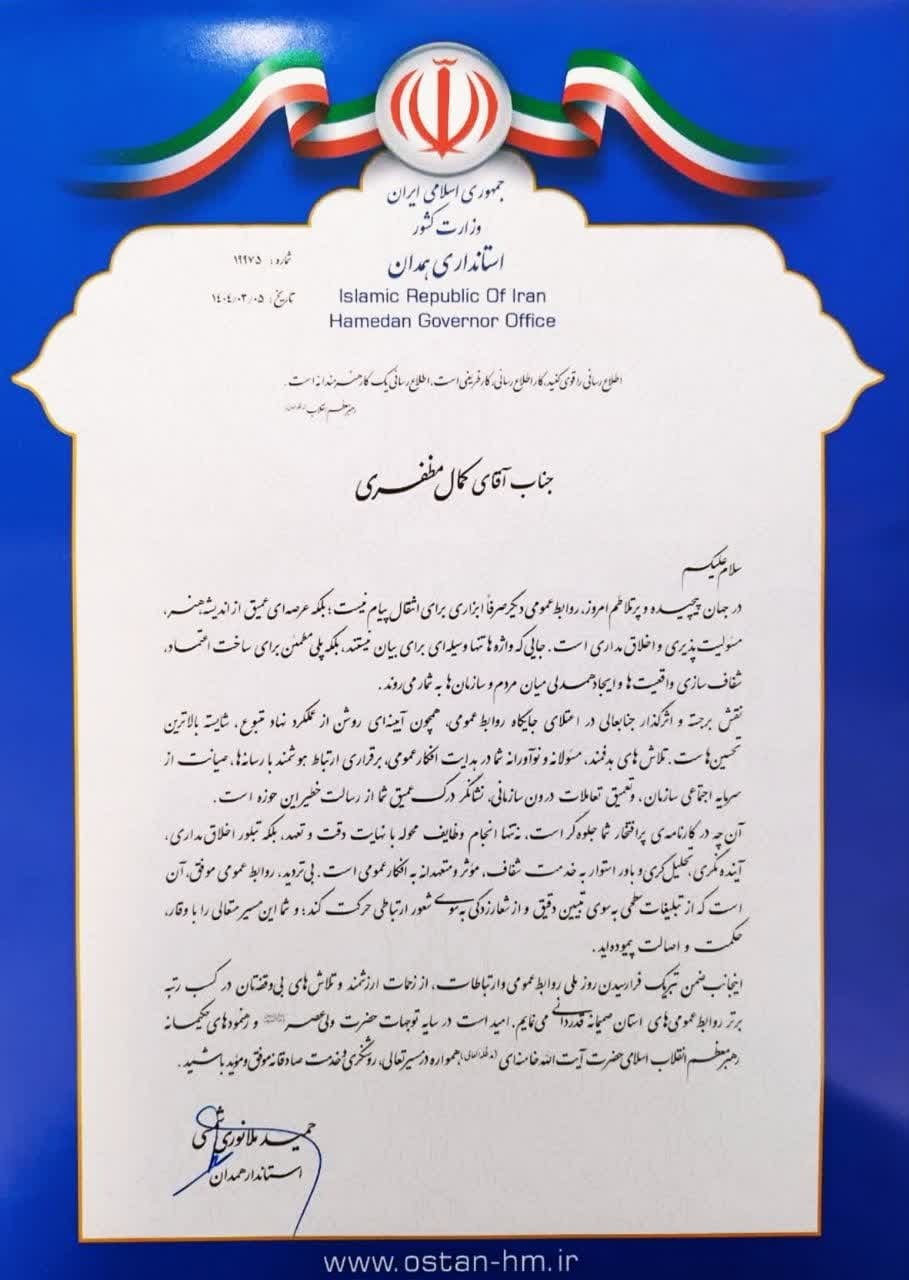 جمهوری اسلامی ایران
وزارت کشور
استانداری همدان
Islamic Republic Of Iran
Hamedan Governor Office
شماره: ۱۹۹۷۵
تاریخ: ۱۴۰۴/۰۳/۰۵
اطلاع رسانی را قوی کنید، کار اطلاع رسانی، کار ظریفی است، اطلاع رسانی یک کار هنرمندانه است.
رهبر معظم انقلاب
جناب آقای کمال مظفری
سلام علیکم
در جهان پیچیده و پرتلاطم امروز، روابط عمومی دیگر صرفاً ابزاری برای انتقال پیام نیست؛ بلکه عرصه‌ای عمیق از اندیشه، هنر،
مسئولیت پذیری و اخلاق مداری است. جایی که واژه ها تنها وسیله‌ای برای بیان نیستند، بلکه پلی مطمئن برای ساخت اعتماد،
شفاف سازی واقعیت ها و ایجاد همدلی میان مردم و سازمان ها به شمار می‌روند.
نقش برجسته و اثرگذار جنابعالی در اعتلای جایگاه روابط عمومی، همچون آیینه‌ای روشن از عملکرد نهاد متبوع، شایسته بالاترین
تحسین هاست. تلاش های هدفمند، مسئولانه و نوآورانه شما در هدایت افکار عمومی، برقراری ارتباط هوشمند با رسانه‌ها، صیانت از
سرمایه اجتماعی سازمان، و تعمیق تعاملات درون سازمانی، نشانگر درک عمیق شما از رسالت خطیر این حوزه است.
آن چه در کارنامه‌ی پرافتخار شما جلوه‌گر است، نه تنها انجام وظایف محوله با نهایت دقت و تعهد، بلکه تبلور اخلاق مداری،
آینده نگری، تحلیل گری و باور استوار به خدمت شفاف، مؤثر و متعهدانه به افکار عمومی است. بی‌تردید، روابط عمومی موفق، آن
است که از تبلیغات سطحی به سوی تبیین دقیق و از شعارزدگی به سوی شعور ارتباطی حرکت کند؛ و شما این مسیر متعالی را با وقار،
حکمت و اصالت پیموده‌اید.
اینجانب ضمن تبریک فرارسیدن روز ملی روابط عمومی و ارتباطات، از زحمات ارزشمند و تلاش های بی‌وقفتان در کسب رتبه
برتر روابط عمومی‌های استان صمیمانه قدردانی می‌نمایم. امید است در سایه توجهات حضرت ولی‌عصر و رهنمودهای حکیمانه
رهبر معظم انقلاب اسلامی حضرت آیت الله خامنه ای (مدظله العالی) همواره در مسیر تعالی، روشنگری و خدمت صادقانه موفق و مؤید باشید.
حمید ملانوری شمسی
استاندار همدان
www.ostan-hm.ir